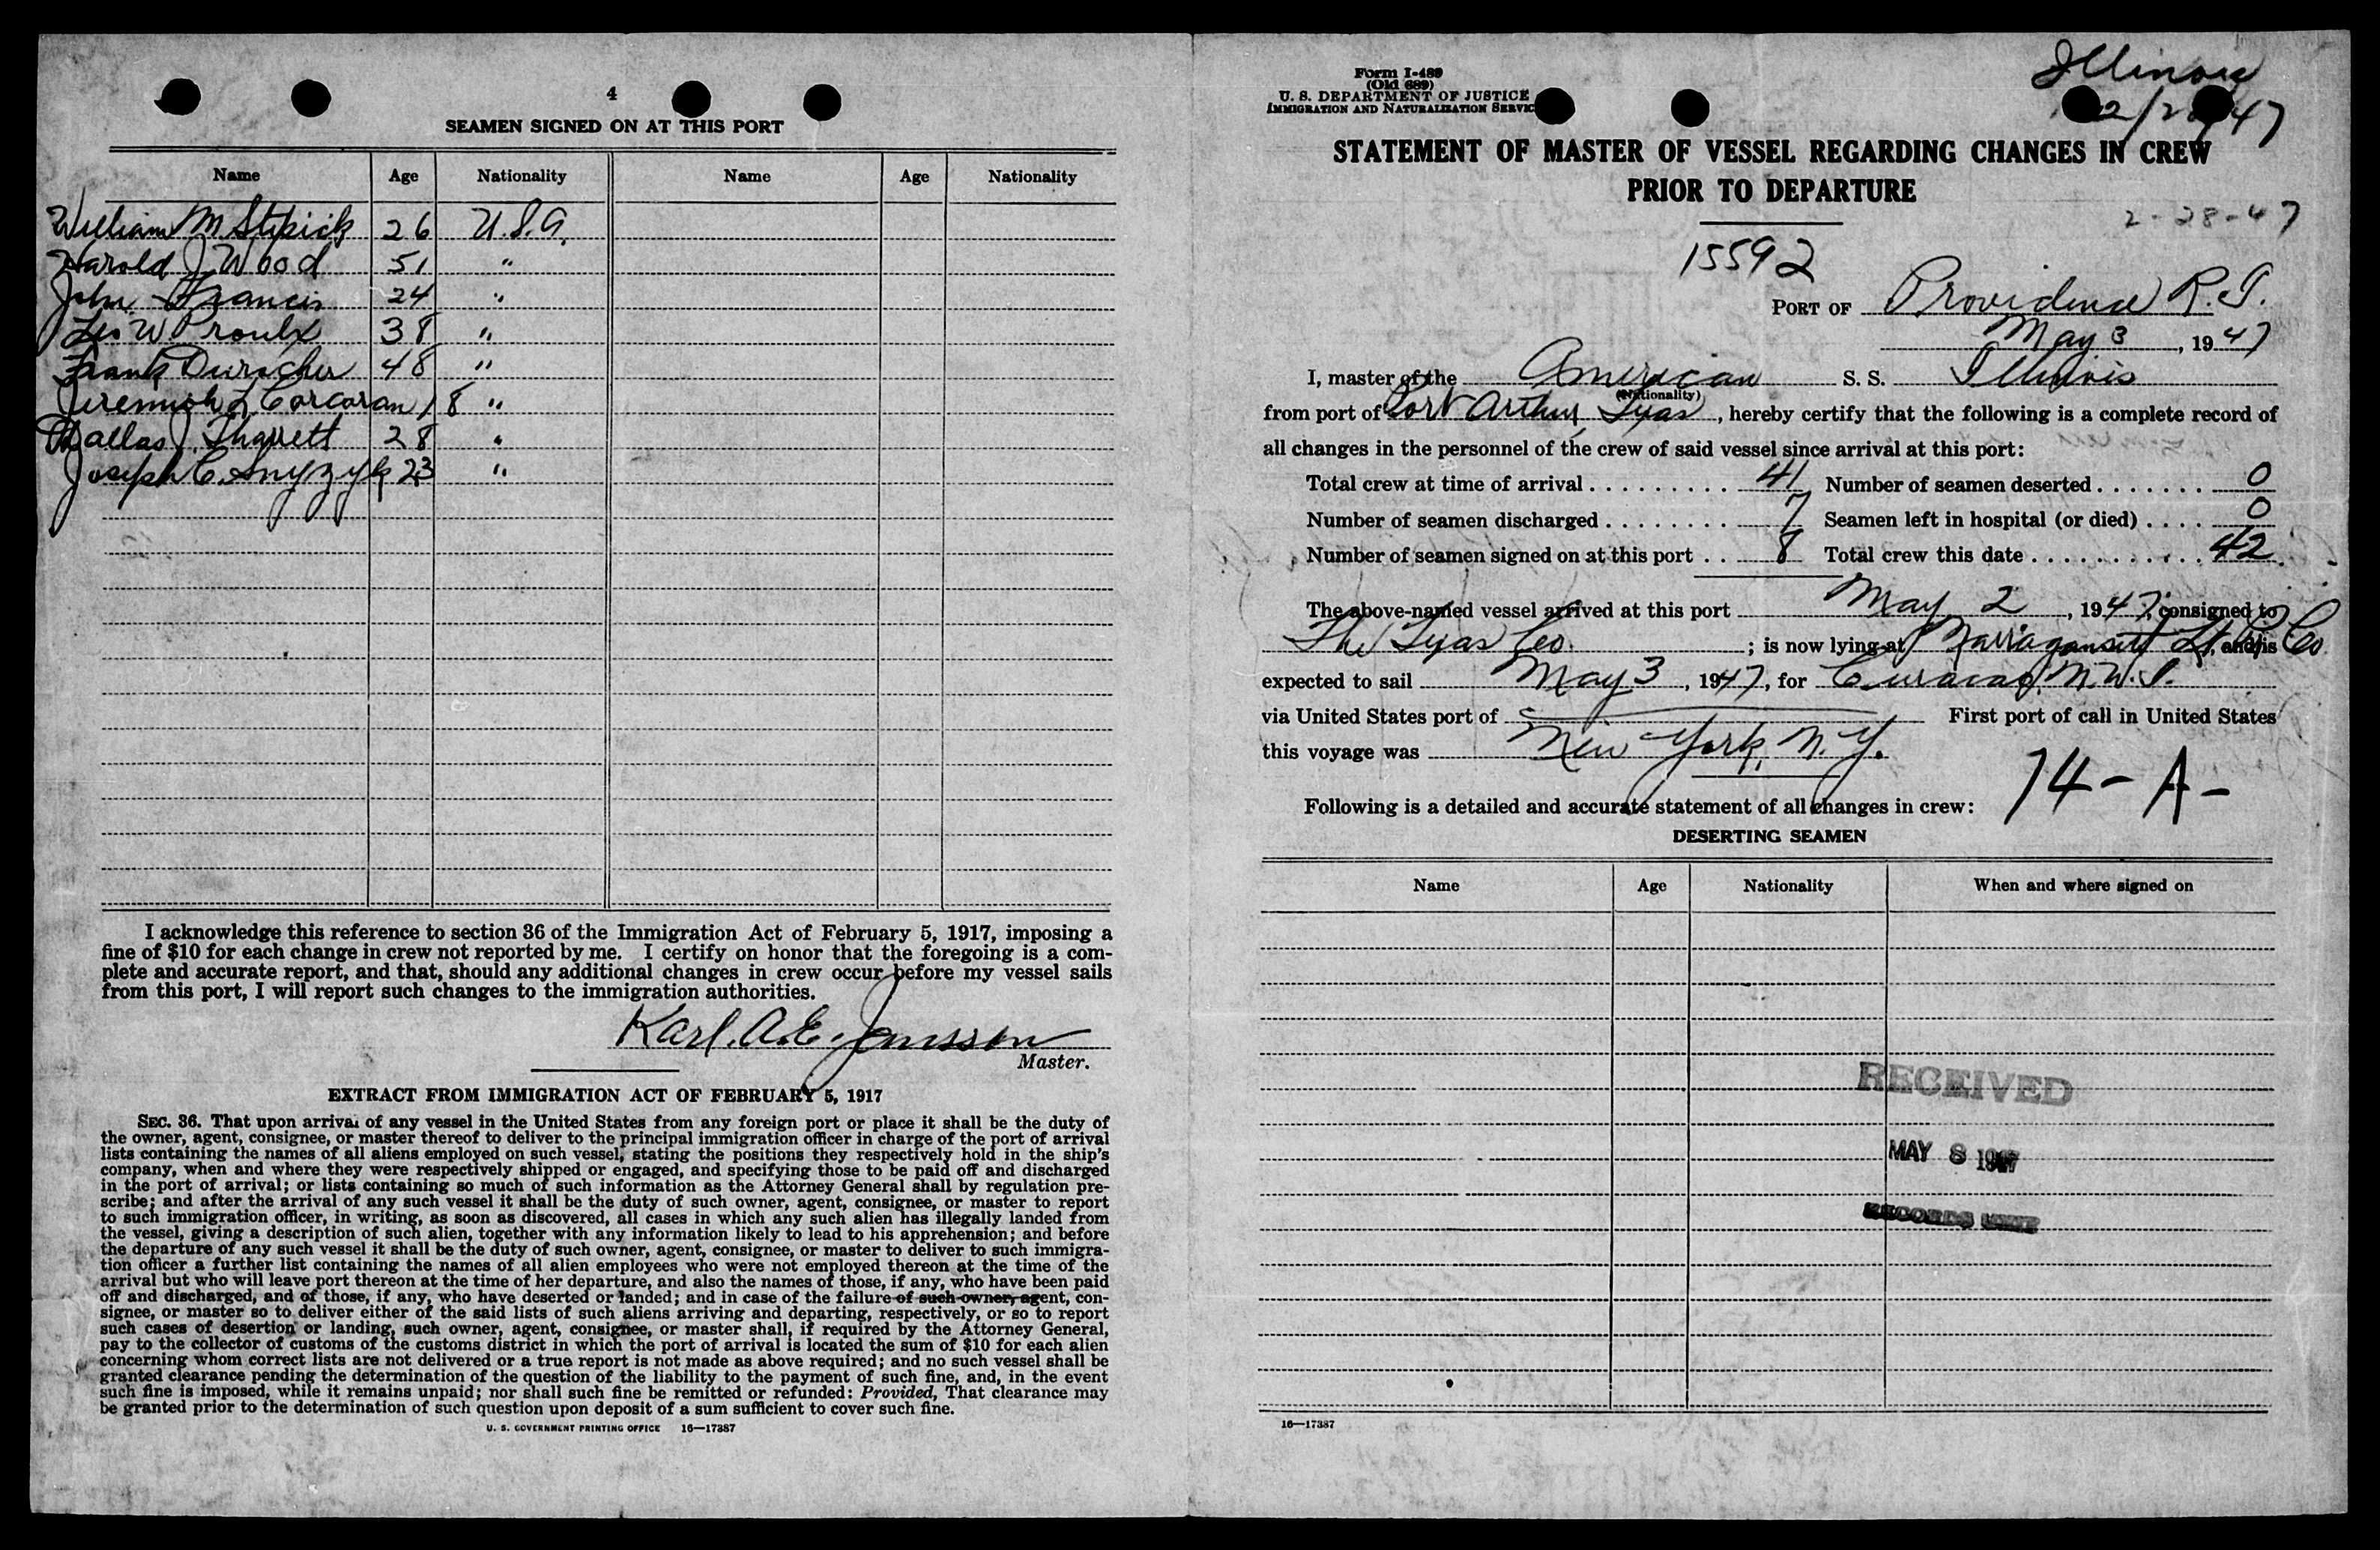 4
SEAMEN SIGNED ON AT THIS PORT
Name Age Nationality Name Age Nationality
William M Stpick 26 U.S.A.
Harold J Wood 51 "
John Francis 24 "
Leo W Proulx 38 "
Frank Durocher 48 "
Jeremiah L Corcoran 18 "
Dallas J. Tharrett 28 "
Joseph C. Snyzyk 23 "
I acknowledge this reference to section 36 of the Immigration Act of February 5, 1917, imposing a
fine of $10 for each change in crew not reported by me. I certify on honor that the foregoing is a com-
plete and accurate report, and that, should any additional changes in crew occur before my vessel sails
from this port, I will report such changes to the immigration authorities.
Karl. A.E. Jansson
Master.
EXTRACT FROM IMMIGRATION ACT OF FEBRUARY 5, 1917
SEC. 36. That upon arrival of any vessel in the United States from any foreign port or place it shall be the duty of
the owner, agent, consignee, or master thereof to deliver to the principal immigration officer in charge of the port of arrival
lists containing the names of all aliens employed on such vessel, stating the positions they respectively hold in the ship's
company, when and where they were respectively shipped or engaged, and specifying those to be paid off and discharged
in the port of arrival; or lists containing so much of such information as the Attorney General shall by regulation pre-
scribe; and after the arrival of any such vessel it shall be the duty of such owner, agent, consignee, or master to report
to such immigration officer, in writing, as soon as discovered, all cases in which any such alien has illegally landed from
the vessel, giving a description of such alien, together with any information likely to lead to his apprehension; and before
the departure of any such vessel it shall be the duty of such owner, agent, consignee, or master to deliver to such immigra-
tion officer a further list containing the names of all alien employees who were not employed thereon at the time of the
arrival but who will leave port thereon at the time of her departure, and also the names of those, if any, who have been paid
off and discharged, and of those, if any, who have deserted or landed; and in case of the failure of such owner, agent, con-
signee, or master so to deliver either of the said lists of such aliens arriving and departing, respectively, or so to report
such cases of desertion or landing, such owner, agent, consignee, or master shall, if required by the Attorney General,
pay to the collector of customs of the customs district in which the port of arrival is located the sum of $10 for each alien
concerning whom correct lists are not delivered or a true report is not made as above required; and no such vessel shall be
granted clearance pending the determination of the question of the liability to the payment of such fine, and, in the event
such fine is imposed, while it remains unpaid; nor shall such fine be remitted or refunded: Provided, That clearance may
be granted prior to the determination of such question upon deposit of a sum sufficient to cover such fine.
U. S. GOVERNMENT PRINTING OFFICE 16—17387
Form I-489
(Old 689)
U. S. DEPARTMENT OF JUSTICE
IMMIGRATION AND NATURALIZATION SERVICE
Illinois
2/28/47
STATEMENT OF MASTER OF VESSEL REGARDING CHANGES IN CREW
PRIOR TO DEPARTURE
2-28-47
15592
PORT OF Providence R.I.
May 3, 1947
I, master of the American S. S. Illinois
(Nationality)
from port of Port Arthur, Texas, hereby certify that the following is a complete record of
all changes in the personnel of the crew of said vessel since arrival at this port:
Total crew at time of arrival . . . . . . . . . 41 Number of seamen deserted . . . . . . . 0
Number of seamen discharged . . . . . . . . 7 Seamen left in hospital (or died) . . . . 0
Number of seamen signed on at this port . . 8 Total crew this date . . . . . . . . . . . 42
The above-named vessel arrived at this port May 2, 1947, consigned to
The Texas Co. ; is now lying at Narragansett , and is Co
expected to sail May 3, 1947, for Curacao, N.W.I.
via United States port of First port of call in United States
this voyage was New York, N.Y.
74-A-
Following is a detailed and accurate statement of all changes in crew:
DESERTING SEAMEN
Name Age Nationality When and where signed on
RECEIVED
MAY 8 1947
RECORDS UNIT
16—17387